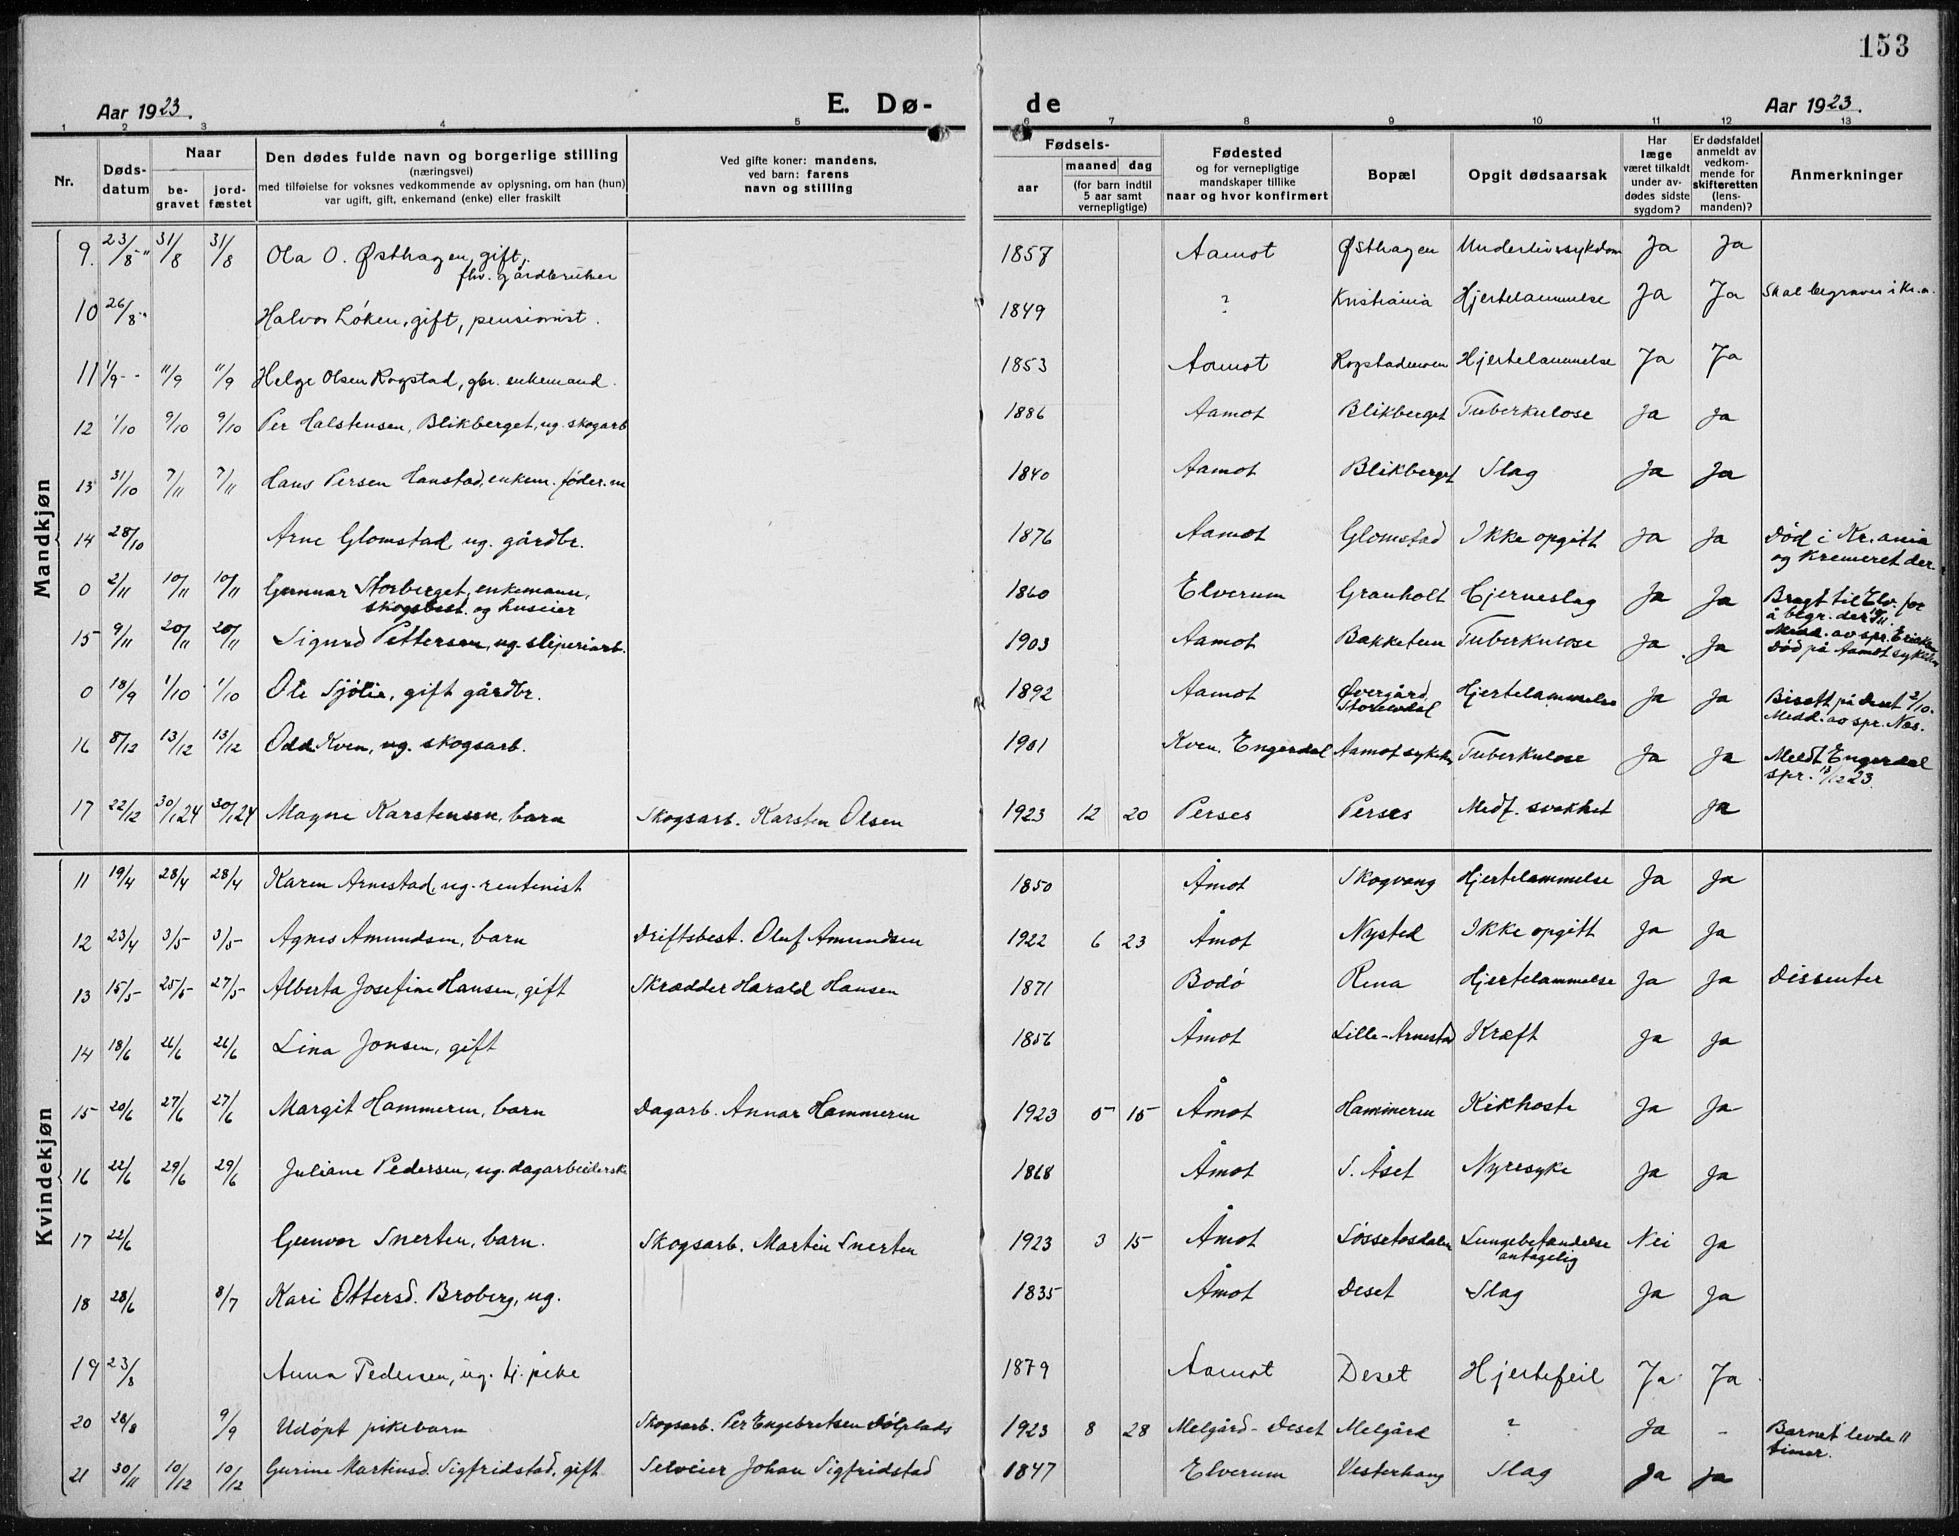 153
Aar 1923. E. Dø- de Aar 1923.
1 2 3 4 5 6 7 8 9 10 11 12 13
Nr.
Døds-datum
Naar
be-gravet
jord-fæstet
Den dødes fulde navn og borgerlige stilling
(næringsvei)
med tilføielse for voksnes vedkommende av oplysning, om han (hun)
var ugift, gift, enkemand (enke) eller fraskilt
Ved gifte koner: mandens,
ved barn: farens
navn og stilling
Fødsels-
aar
maaned dag
(for barn indtil
5 aar samt
vernepligtige)
Fødested
og for vernepligtige
mandskaper tillike
naar og hvor konfirmert
Bopæl
Opgit dødsaarsak
Har
læge
været tilkaldt
under av-
dødes sidste
sygdom?
Er dødsfaldet
anmeldt av
vedkom-
mende for
skifteretten
(lens-
manden)?
Anmerkninger
Mandkjøn
9. 23/8 31/8 31/8 Ola O. Østhagen, gift, 1857 Aamot Østhagen Underlivssykdom Ja Ja
fhv. gårdbruker
10 26/8 Halvor Løken, gift, pensionist. 1849 ? Kristiania Hjertelammelse Ja Ja Skal begraves i Kr.a.
11 1/9 11/9 11/9 Helge Olsen Rogstad, gbr. enkemand. 1853 Aamot Rogstadmoen Hjertelammelse Ja Ja
12 1/10 9/10 9/10 Per Halstensen, Blikberget, ug. skogarb 1886 Aamot Blikberget Tuberkulose Ja Ja
13 31/10 7/11 7/11 Hans Persen Hanstad, enkem. føder.m 1840 Aamot Blikberget Slag Ja Ja
14 28/10 Arne Glomstad ug. gårdbr. 1876 Aamot Glomstad Ikke opgitt Ja Ja Død i Kr.ania
og kremeret der.
0 2/11 10/11 10/11 Gunnar Storberget, enkemann, 1860 Elverum Granholt Hjerneslag Ja Ja Bragt til Elv. for
skogsbest. og huseier å begr. der 10/11.
Medd. av spr.
15 9/11 20/11 20/11 Sigurd Pettersen, ug. sliperiarb. 1903 Aamot Bakketun Tuberkulose Ja Ja Død på Aamot
0 18/9 1/10 1/10 Ole Sjølie, gift gårdbr. 1892 Aamot Øvergård, Hjertelammelse Ja Ja Bisatt på Deset 2/10.
Storelvdal Medd. av spr. Næs.
16 8/12 13/12 13/12 Odd Kven, ug. skogsarb. 1901 Kven, Engerdal Aamot sykeh. Tuberkulose Ja Ja Meldt Engerdal
spr. 13/12 23.
17 22/12 30/1 24 30/1 24 Magne Karstensen, barn Skogsarb. Karsten Olsen 1923 12 20 Perses Perses Medf. svakhet Ja
Kvindekjøn
11 19/4 28/4 28/4 Karen Arnestad ug. rentenist 1850 Åmot Skogvang Hjertelammelse Ja Ja
12 23/4 3/5 3/5 Agnes Amundsen, barn Driftsbest. Oluf Amundsen 1922 6 23 Åmot Nysted Ikke opgitt Ja Ja
13 15/5 25/5 27/5 Alberta Josefine Hansen, gift Skrædder Harald Hansen 1871 Bodø Rena Hjertelammelse Ja Ja Dissenter
14 18/6 26/6 26/6 Lina Jonsen, gift 1856 Åmot Lille-Arnestad Kræft Ja Ja
15 20/6 27/6 27/6 Margit Hammeren, barn Dagarb. Annar Hammeren 1923 5 15 Åmot Hammeren Kikhoste Ja Ja
16 22/6 29/6 29/6 Juliane Pedersen, ug. dagarbeiderske 1868 Åmot S. Åset Nyresyke Ja Ja
17 22/6 Gunvor Snerten, barn. Skogsarb. Martin Snerten 1923 3 15 Åmot Løssetosdalen Lungebetændelse Nei Ja
antagelig
18 28/6 8/7 Kari Ottersd. Broberg, ug. 1835 Åmot Deset Slag Ja Ja
19 23/8 Anna Pedersen, ug. tj. pike 1879 Aamot Deset Hjertefeil Ja Ja
20 28/8 9/9 Udøpt pikebarn Skogsarb. Per Engebretsen Dølplads 1923 8 28 Melgård-Deset Melgård ? Ja - Barnet levde 11
timer.
21 30/11 10/12 10/12 Gurine Martinsd. Sigfridstad, gift Selveier Johan Sigfridstad 1847 Elverum Vesterhaug Slag Ja Ja